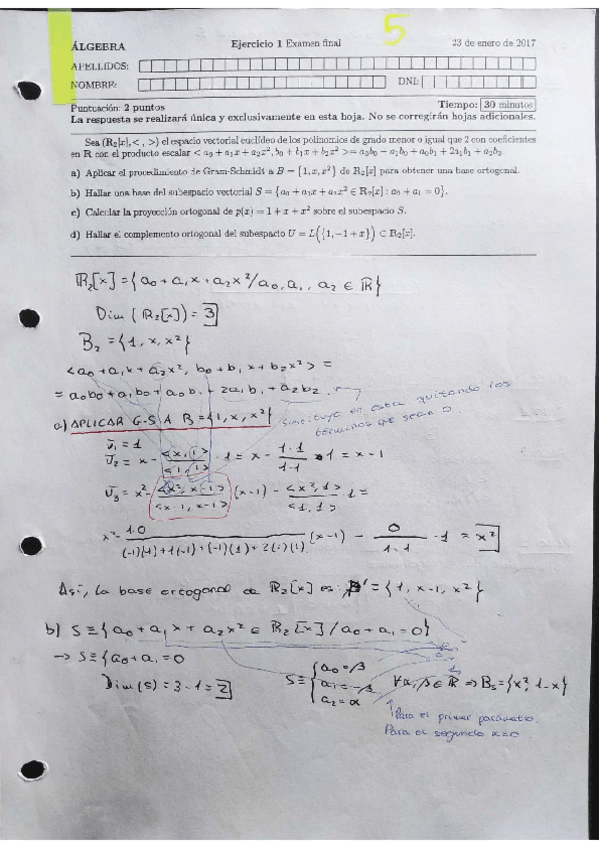 5
ÁLGEBRA Ejercicio 1 Examen final 23 de enero de 2017
APELLIDOS:
NOMBRE: DNI:
Puntuación: 2 puntos Tiempo: 30 minutos
La respuesta se realizará única y exclusivamente en esta hoja. No se corregirán hojas adicionales.
Sea (R₂[x],< , >) el espacio vectorial euclídeo de los polinomios de grado menor o igual que 2 con coeficientes
en R con el producto escalar < a₀ + a₁x + a₂x², b₀ + b₁x + b₂x² >= a₀b₀ + a₁b₀ + a₀b₁ + 2a₁b₁ + a₂b₂.
a) Aplicar el procedimiento de Gram-Schmidt a B = {1, x, x²} de R₂[x] para obtener una base ortogonal.
b) Hallar una base del subespacio vectorial S = {a₀ + a₁x + a₂x² ∈ R₂[x] : a₀ + a₁ = 0}.
c) Calcular la proyección ortogonal de p(x) = 1 + x + x² sobre el subespacio S.
d) Hallar el complemento ortogonal del subespacio U = L({1, −1 + x}) ⊂ R₂[x].
ℝ₂[x] = {a₀ + a₁x + a₂x² / a₀, a₁, a₂ ∈ ℝ}
Dim (ℝ₂[x]) = 3
B₂ = {1, x, x²}
<a₀ + a₁x + a₂x², b₀ + b₁x + b₂x²> =
= a₀b₀ + a₁b₀ + a₀b₁ + 2a₁b₁ + a₂b₂
a) APLICAR G-S A B = {1, x, x²} sustituyo en esta quitando los
términos que sean 0.
v̄₁ = 1
v̄₂ = x - <x, 1>/<1, 1> · 1 = x - 1·1/1·1 · 1 = x - 1
v̄₃ = x² - <x², x-1>/<x-1, x-1> (x-1) - <x², 1>/<1, 1> · 1 =
x² - 1·0/(-1)(-1) + 1(-1) + (-1)(1) + 2(1)(1) (x-1) - 0/1·1 · 1 = x²
Así, la base ortogonal de ℝ₂[x] es: B' = {1, x-1, x²}
b) S ≡ {a₀ + a₁x + a₂x² ∈ ℝ₂[x] / a₀ + a₁ = 0}
→ S ≡ {a₀ + a₁ = 0
Dim (S) = 3 - 1 = 2
S ≡ { a₀ = β
a₁ = -β ∀α, β ∈ ℝ ⇒ Bs = {x², 1-x}
a₂ = α
Para el primer parámetro.
Para el segundo α=0.